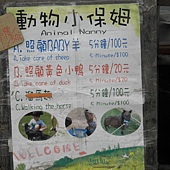 動物小保姆
Animal Nanny
A. 照顧BABY羊 5分鐘/100元
Take care of sheep 5 Minute/$100
B. 照顧黃色小鴨 5分鐘/20元
Take care of duck 5 Minute/$20
5分鐘/100元
Walking the horse 5 Minute/$100
WELCOME!